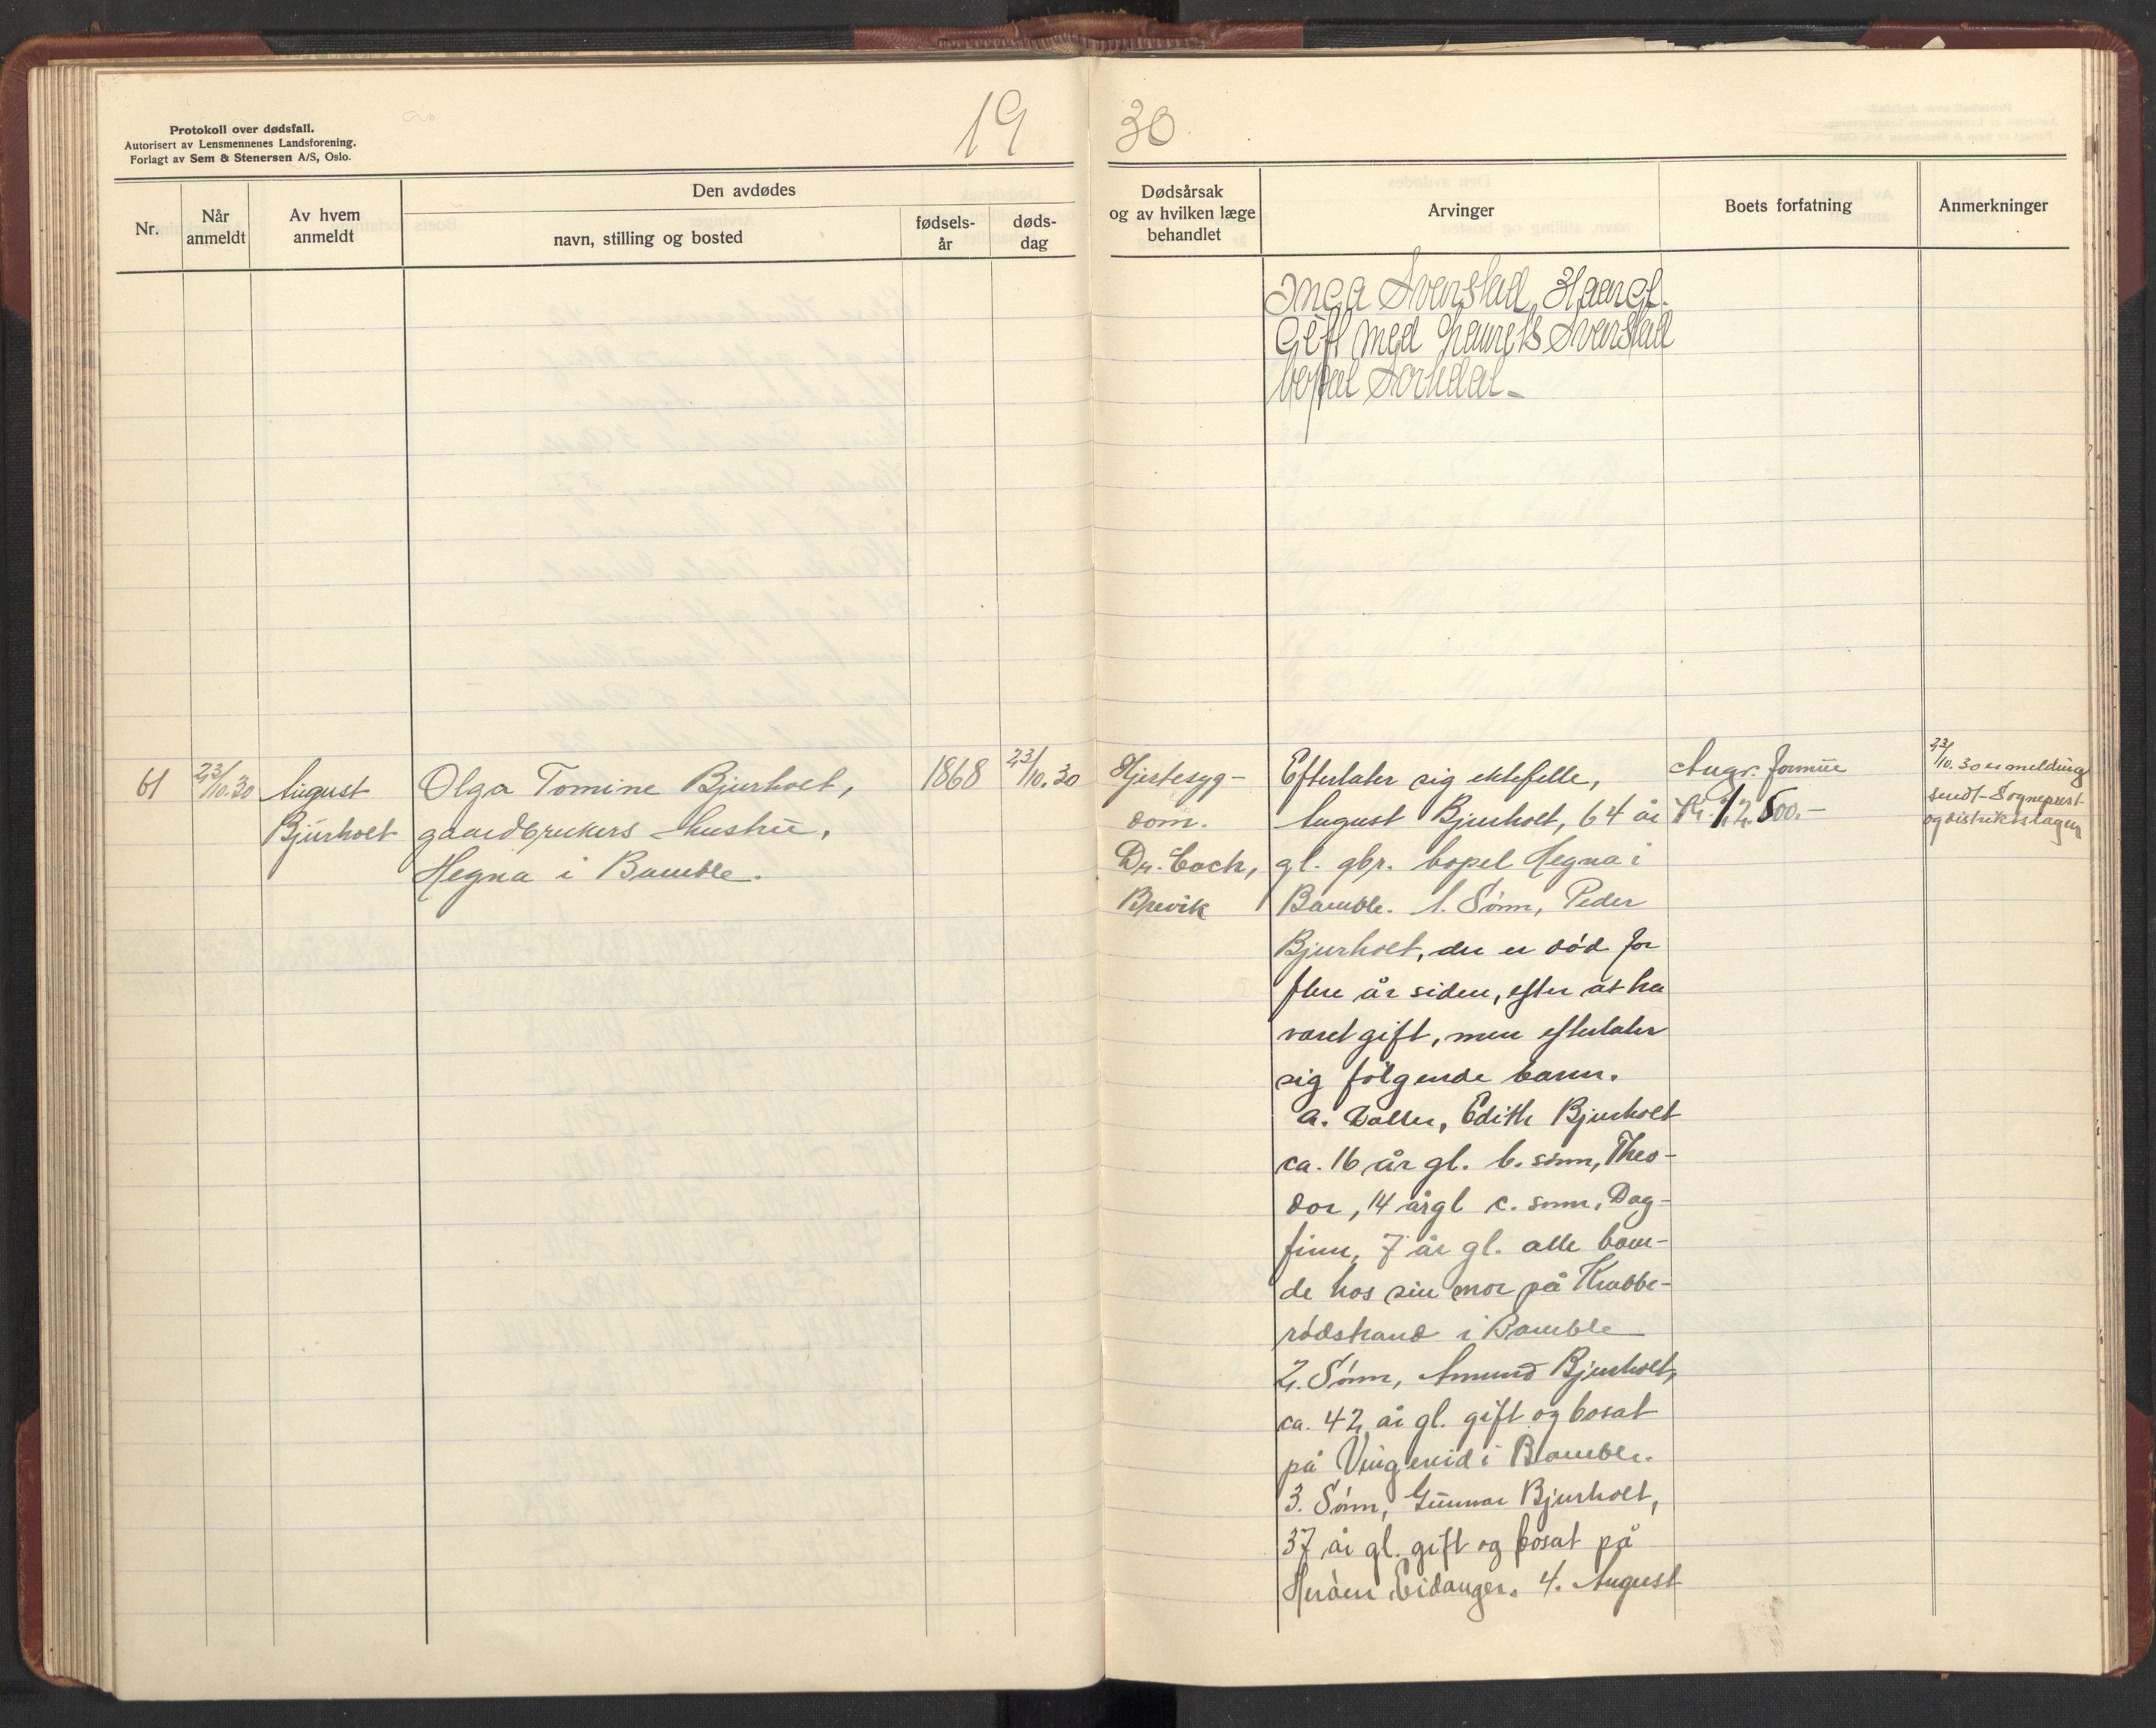 Protokoll over dødsfall.
Autorisert av Lensmennenes Landsforening.
Forlagt av Sem & Stenersen A/S, Oslo.
19 30
Nr.
Når
anmeldt
Av hvem
anmeldt
Den avdødes
navn, stilling og bosted
fødsels-
år
døds-
dag
Dødsårsak
og av hvilken læge
behandlet
Arvinger
Boets forfatning
Anmerkninger
Inga Svenstad,
Gift med Svenstad
bopæl
61
23/10.30
August
Bjürholt
Olga Tomine Bjurholt,
gaardbrukers hustrü,
Hegna i Bamble.
1868
23/10.30
Hjertesyg-
dom.
Dr. Coch,
Brevik
Efterlater sig ektefelle,
August Bjurholt, 64 år
gl. gbr. bopel Hegna i
Bamble. 1. Sønn, Peder
Bjurholt, der er død for
flere år siden, efter at ha
varet gift, men efterlater
sig følgende barn.
a. Datter, Edith Bjurholt
ca. 16 år gl. b. sønn, Theo-
dor, 14 årgl c. sønn, Dag-
finn, 7 år gl. alle boen-
de hos sin mor på Krabbe-
rødstrand i Bamble
2. Sønn, Amund Bjurholt,
ca. 42 år gl. gift og bosat
på i Bamble.
3. Sønn, Günnar Bjurholt,
37 år gl. gift og bosat på
Herøen Eidanger. 4. August
Angr. formüe
Kr. 12.500.-
23/10.30 er melding
sendt Sogneprest
og distriktslægen